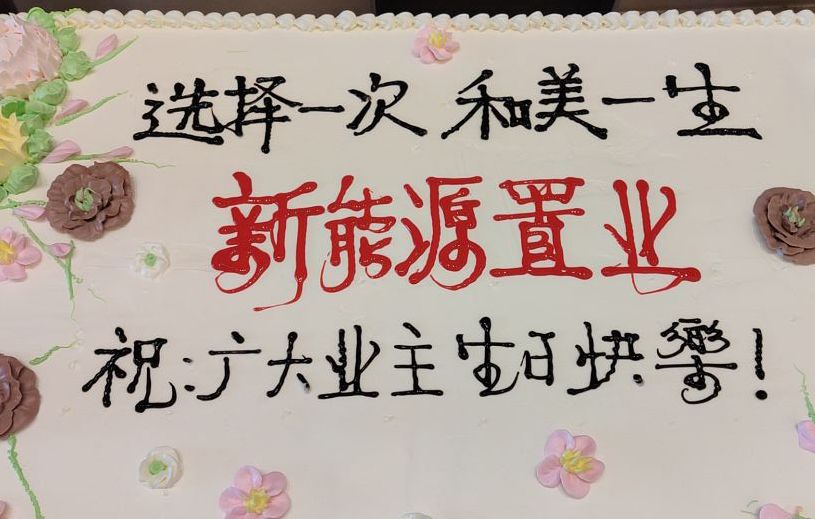 选择一次 和美一生
新能源置业
祝:广大业主生日快樂!